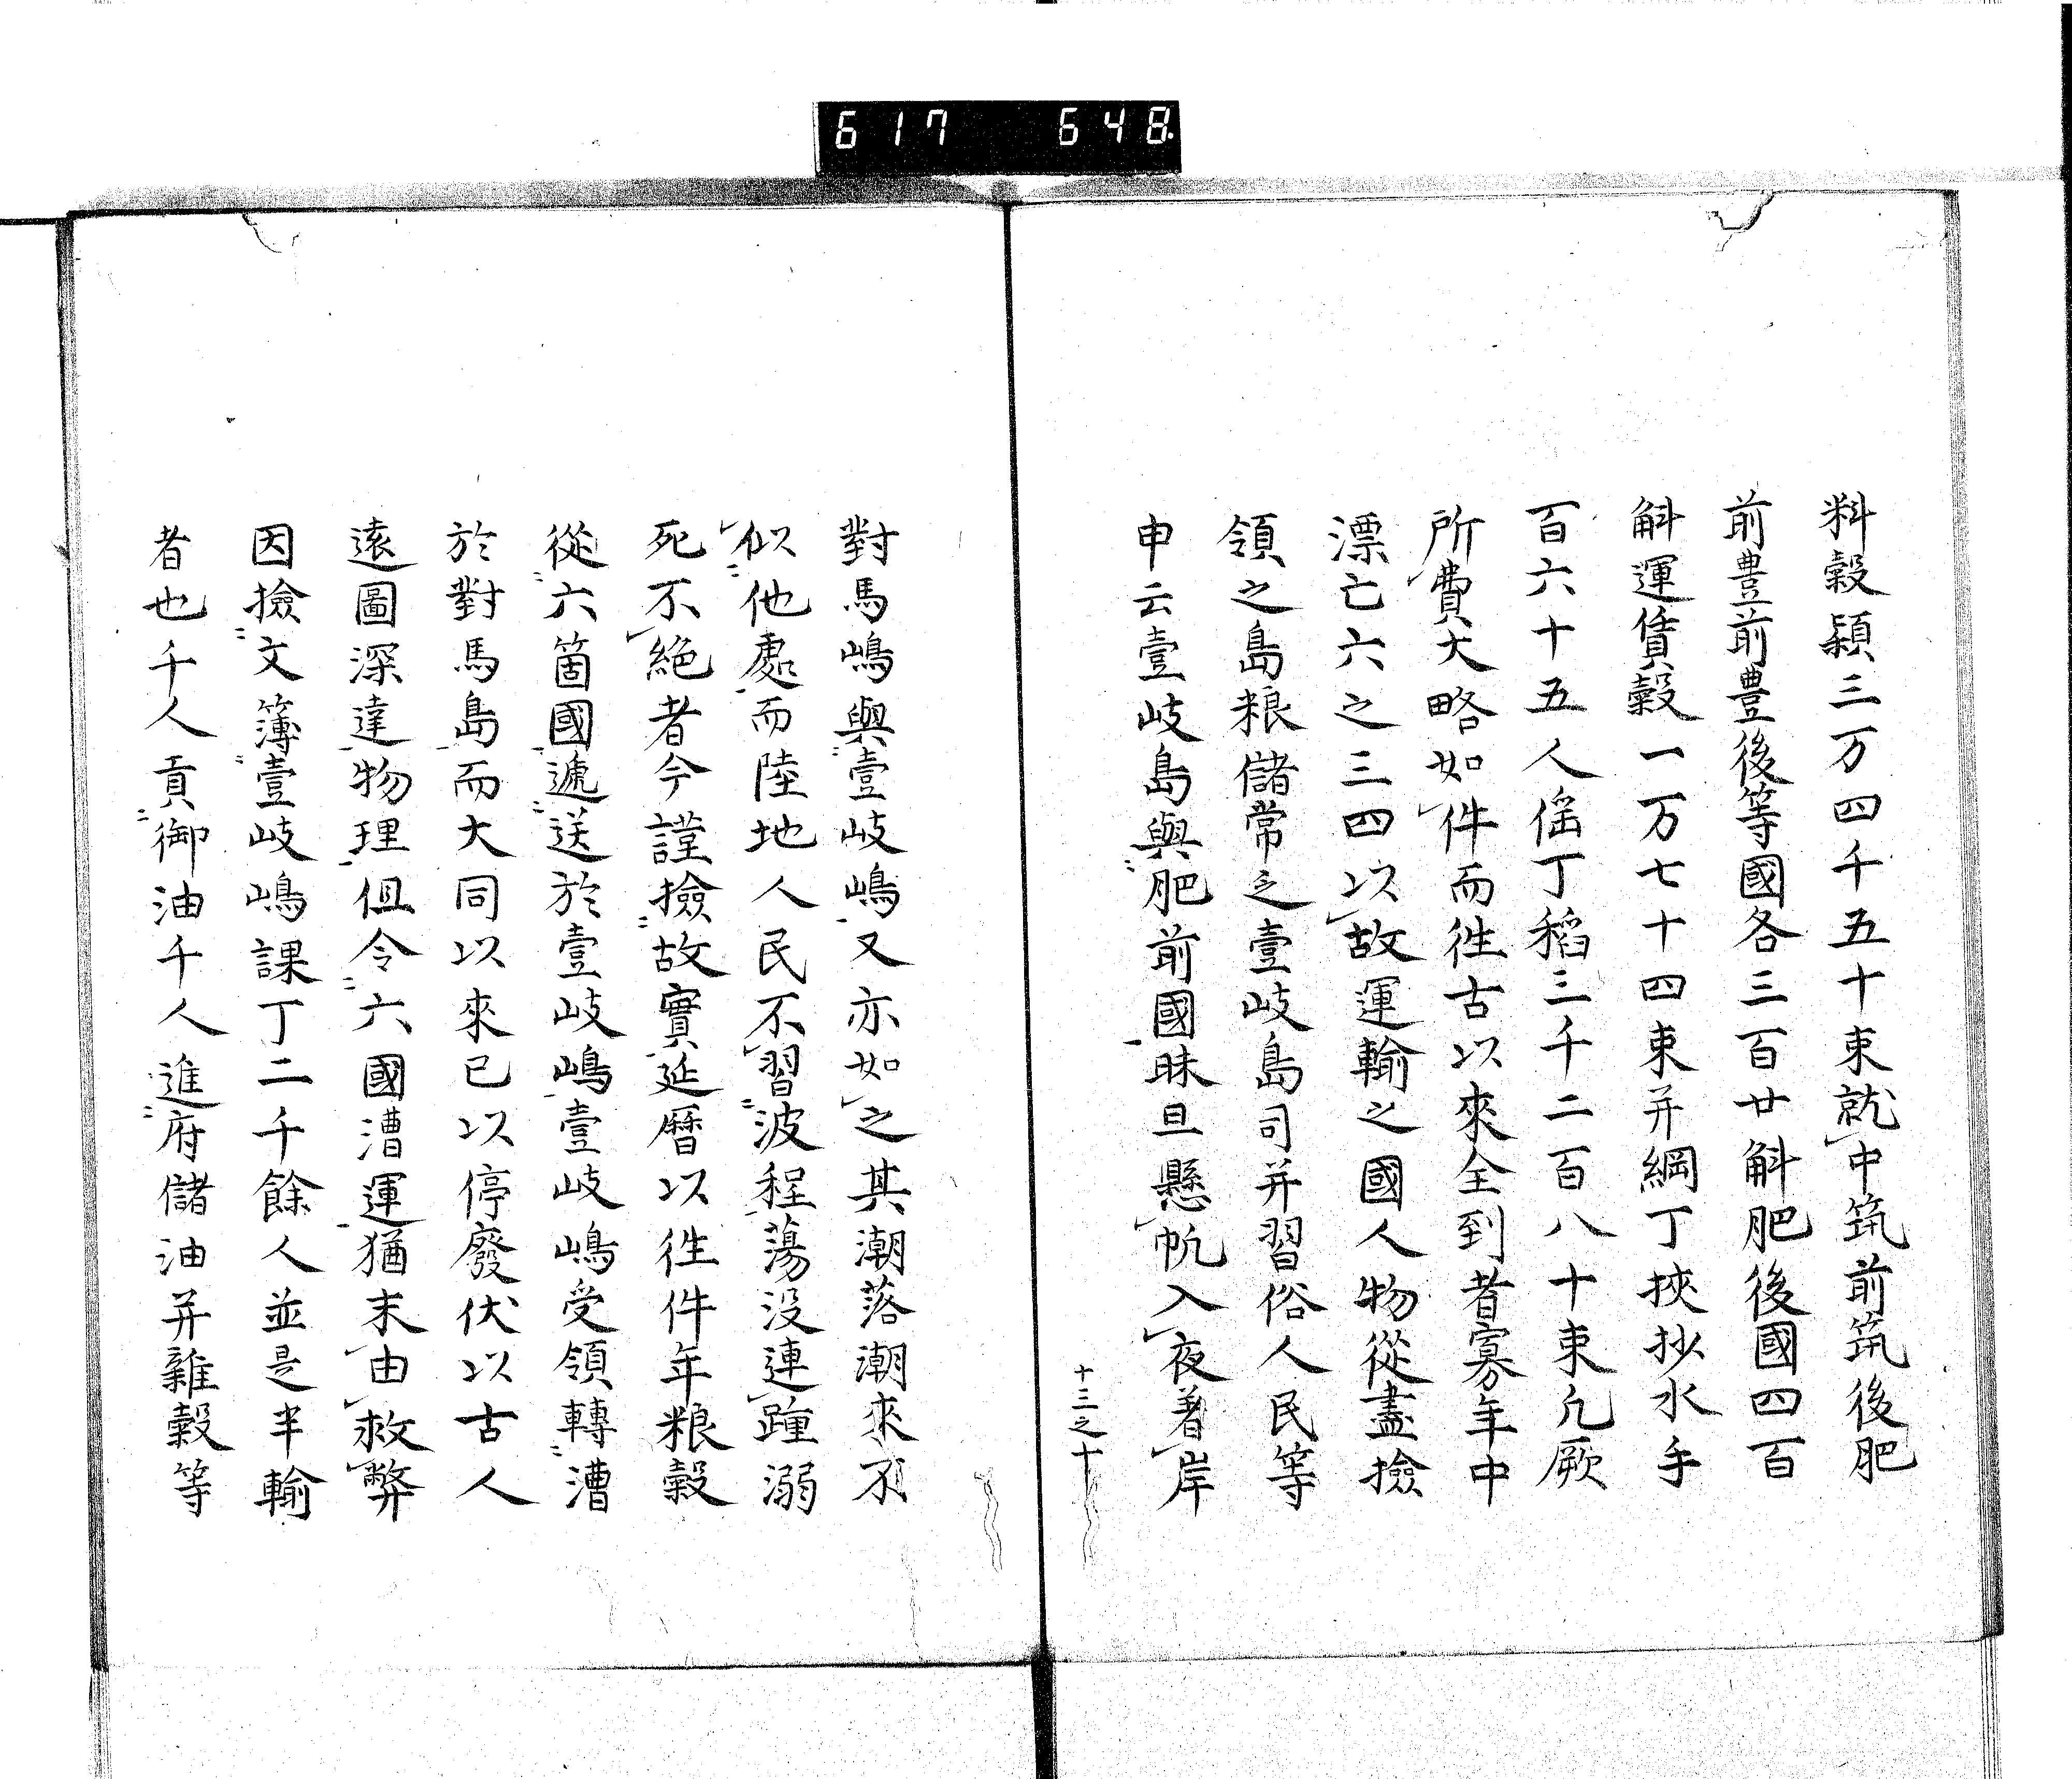 617 648
料穀頴三万四千五十束就中筑前筑後肥
前豊前豊後等國各三百廿斛肥後國四百
斛運賃穀一万七十四束并綱丁挾抄水手
百六十五人傜丁稻三千二百八十束凢厥
所費大略如件而徃古以來全到者寡年中
漂亡六之三四以故運輸之國人物從盡撿
領之島粮儲常乏壹岐島司并習俗人民等
申云壹岐島與肥前國昧旦懸帆入夜著岸
十三之十
對馬嶋與壹岐嶋又亦如之其潮落潮來不
似他處而陸地人民不習波程蕩没連踵溺
死不絕者今謹撿故實延暦以徃件年粮穀
從六箇國遞送於壹岐嶋壹岐嶋受領轉漕
於對馬島而大同以來已以停廢伏以古人
遠圖深達物理伹令六國漕運猶末由救弊
因撿文簿壹岐嶋課丁二千餘人並是半輸
者也千人貢御油千人進府儲油并雜穀等